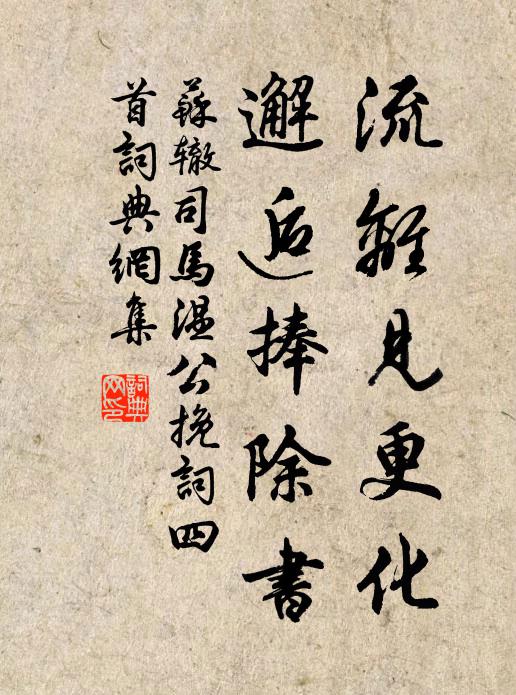 流離見更化
邂逅捧除書
蘇辙司馬温公挽詞四
首詞典網集
詞典
网印